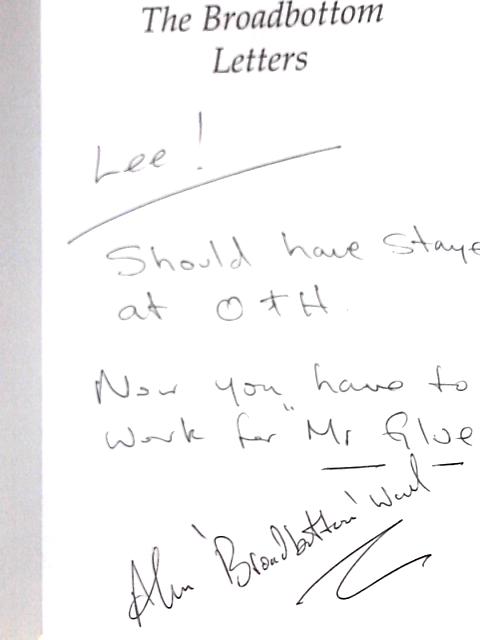 The Broadbottom
Letters
Lee!
Should have Staye
at OTH
Now you have to
work for "Mr Glue
Alan 'Broadbottom'